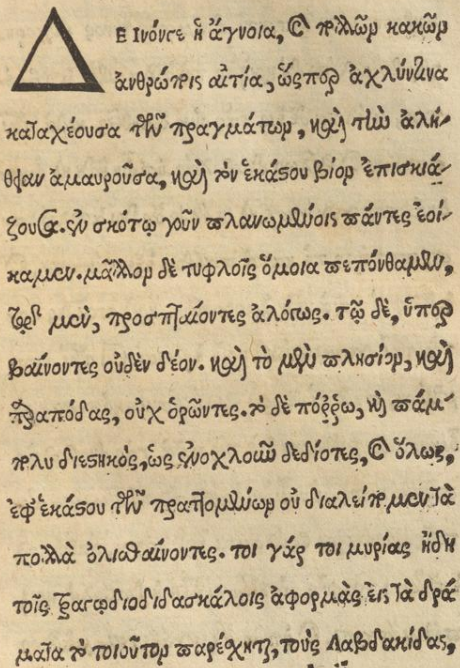 ΔΕΙνόν γε ἡ ἄγνοια, καὶ πολλῶν κακῶν
ἀνθρώποις αἰτία, ὥσπερ ἀχλύν τινα
καταχέουσα τῶν πραγμάτων, καὶ τὴν ἀλή-
θειαν ἀμαυροῦσα, καὶ τὸν ἑκάστου βίον ἐπισκιά-
ζουσα. ἐν σκότῳ γοῦν πλανωμένοις πάντες ἐοί-
καμεν. μᾶλλον δὲ τυφλοῖς ὅμοια πεπόνθαμεν,
τῷ μὲν, προσπταίοντες ἀλόγως. τῷ δὲ, ὑπερ
βαίνοντες οὐδὲν δέον. καὶ τὸ μὲν πλησίον, καὶ
παραπόδας, οὐχ ὁρῶντες. τὸ δὲ πόῤῥω, καὶ πάμ-
πολυ διεστηκός, ὡς ἐνοχλοῦν δεδιότες, καὶ ὅλως,
ἐφ' ἑκάστου τῶν πραττομένων οὐ διαλείπομεν τὰ
πολλὰ ὀλισθαίνοντες. τοι γάρ τοι μυρίας ἤδη
τοῖς τραγῳδιοδιδασκάλοις ἀφορμὰς εἰς τὰ δρά
ματα τὸ τοιοῦτον παρέχηται, τοὺς Λαβδακίδας,